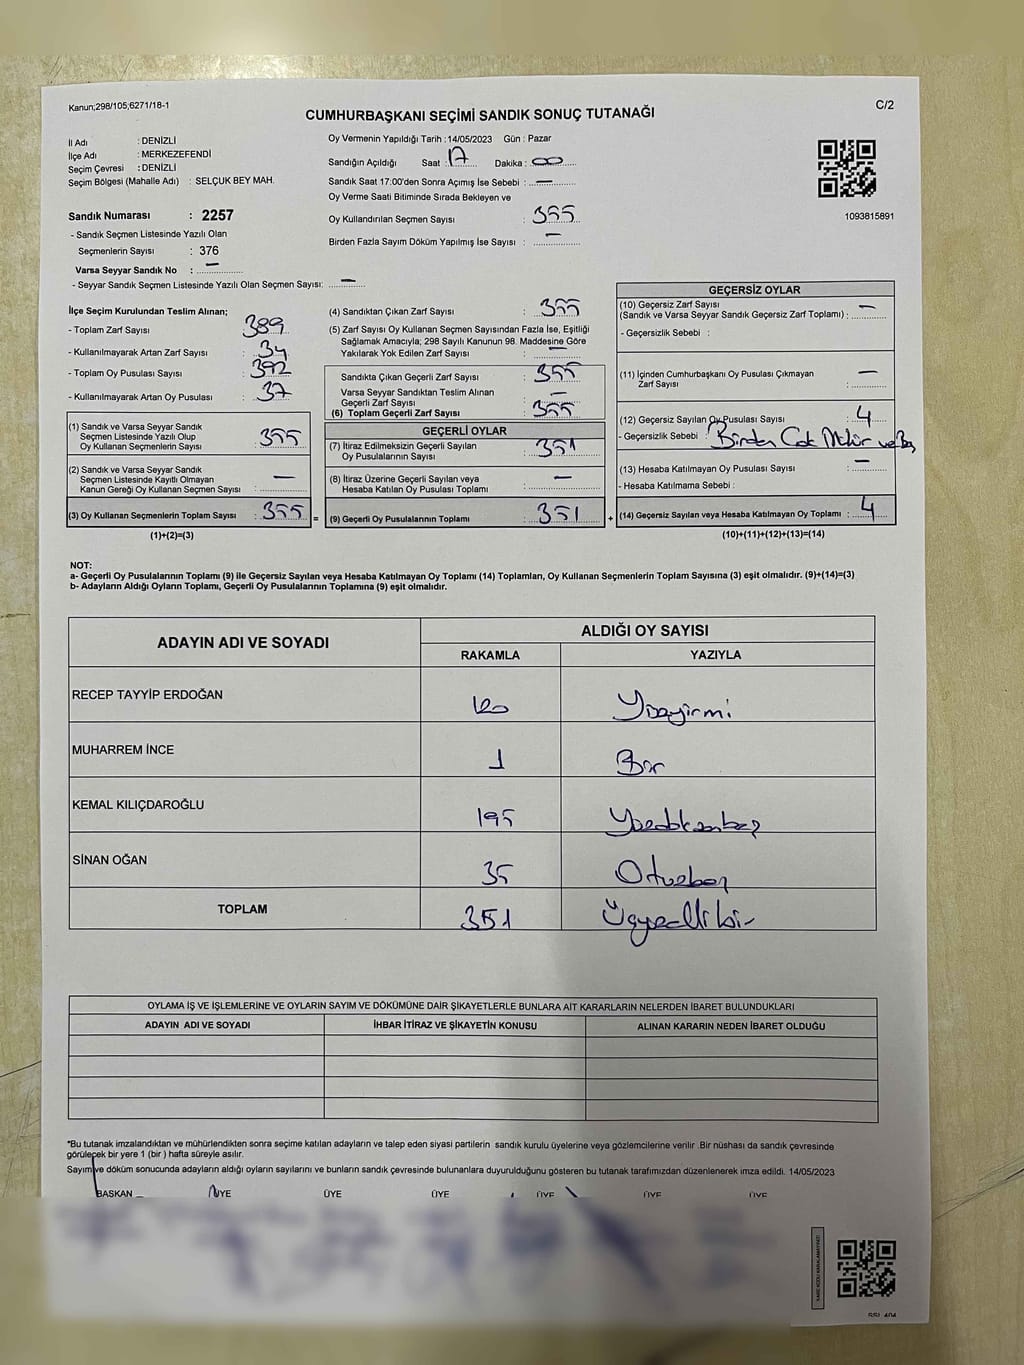 Kanun;298/105;6271/18-1
C/2
CUMHURBAŞKANI SEÇİMİ SANDIK SONUÇ TUTANAĞI
İl Adı : DENİZLİ
İlçe Adı : MERKEZEFENDİ
Seçim Çevresi : DENİZLİ
Seçim Bölgesi (Mahalle Adı) : SELÇUK BEY MAH.
Sandık Numarası : 2257
- Sandık Seçmen Listesinde Yazılı Olan
Seçmenlerin Sayısı : 376
Varsa Seyyar Sandık No : —
- Seyyar Sandık Seçmen Listesinde Yazılı Olan Seçmen Sayısı: —
Oy Vermenin Yapıldığı Tarih : 14/05/2023 Gün : Pazar
Sandığın Açıldığı Saat : 17 Dakika : 00
Sandık Saat 17:00'den Sonra Açımış İse Sebebi : —
Oy Verme Saati Bitiminde Sırada Bekleyen ve
Oy Kullandırılan Seçmen Sayısı : 355
Birden Fazla Sayım Döküm Yapılmış İse Sayısı : —
1093815891
İlçe Seçim Kurulundan Teslim Alınan;
- Toplam Zarf Sayısı : 389
- Kullanılmayarak Artan Zarf Sayısı : 34
- Toplam Oy Pusulası Sayısı : 392
- Kullanılmayarak Artan Oy Pusulası : 37
(1) Sandık ve Varsa Seyyar Sandık
Seçmen Listesinde Yazılı Olup
Oy Kullanan Seçmenlerin Sayısı : 355
(2) Sandık ve Varsa Seyyar Sandık
Seçmen Listesinde Kayıtlı Olmayan
Kanun Gereği Oy Kullanan Seçmen Sayısı : —
(3) Oy Kullanan Seçmenlerin Toplam Sayısı : 355
(1)+(2)=(3)
=
(4) Sandıktan Çıkan Zarf Sayısı : 355
(5) Zarf Sayısı Oy Kullanan Seçmen Sayısından Fazla İse, Eşitliği
Sağlamak Amacıyla; 298 Sayılı Kanunun 98. Maddesine Göre
Yakılarak Yok Edilen Zarf Sayısı : —
Sandıkta Çıkan Geçerli Zarf Sayısı : 355
Varsa Seyyar Sandıktan Teslim Alınan
Geçerli Zarf Sayısı : —
(6) Toplam Geçerli Zarf Sayısı : 355
GEÇERLİ OYLAR
(7) İtiraz Edilmeksizin Geçerli Sayılan
Oy Pusulalarının Sayısı : 351
(8) İtiraz Üzerine Geçerli Sayılan veya
Hesaba Katılan Oy Pusulası Toplamı : —
(9) Geçerli Oy Pusulalarının Toplamı : 351
+
GEÇERSİZ OYLAR
(10) Geçersiz Zarf Sayısı
(Sandık ve Varsa Seyyar Sandık Geçersiz Zarf Toplamı) : —
- Geçersizlik Sebebi :
(11) İçinden Cumhurbaşkanı Oy Pusulası Çıkmayan
Zarf Sayısı : —
(12) Geçersiz Sayılan Oy Pusulası Sayısı : 4
- Geçersizlik Sebebi : Birden Çok Mühür ve Boş
(13) Hesaba Katılmayan Oy Pusulası Sayısı : —
- Hesaba Katılmama Sebebi :
(14) Geçersiz Sayılan veya Hesaba Katılmayan Oy Toplamı : 4
(10)+(11)+(12)+(13)=(14)
NOT:
a- Geçerli Oy Pusulalarının Toplamı (9) ile Geçersiz Sayılan veya Hesaba Katılmayan Oy Toplamı (14) Toplamları, Oy Kullanan Seçmenlerin Toplam Sayısına (3) eşit olmalıdır. (9)+(14)=(3)
b- Adayların Aldığı Oyların Toplamı, Geçerli Oy Pusulalarının Toplamına (9) eşit olmalıdır.
ADAYIN ADI VE SOYADI
ALDIĞI OY SAYISI
RAKAMLA YAZIYLA
RECEP TAYYİP ERDOĞAN 120 Yüzyirmi
MUHARREM İNCE 1 Bir
KEMAL KILIÇDAROĞLU 195
SİNAN OĞAN 35 Otuzbeş
TOPLAM 351 Üçyüzellibir
OYLAMA İŞ VE İŞLEMLERİNE VE OYLARIN SAYIM VE DÖKÜMÜNE DAİR ŞİKAYETLERLE BUNLARA AİT KARARLARIN NELERDEN İBARET BULUNDUKLARI
ADAYIN ADI VE SOYADI İHBAR İTİRAZ VE ŞİKAYETİN KONUSU ALINAN KARARIN NEDEN İBARET OLDUĞU
*Bu tutanak imzalandıktan ve mühürlendikten sonra seçime katılan adayların ve talep eden siyasi partilerin sandık kurulu üyelerine veya gözlemcilerine verilir .Bir nüshası da sandık çevresinde
görülecek bir yere 1 (bir ) hafta süreyle asılır.
Sayım ve döküm sonucunda adayların aldığı oyların sayılarını ve bunların sandık çevresinde bulunanlara duyurulduğunu gösteren bu tutanak tarafımızdan düzenlenerek imza edildi. 14/05/2023
BAŞKAN ÜYE ÜYE ÜYE ÜYE ÜYE ÜYE